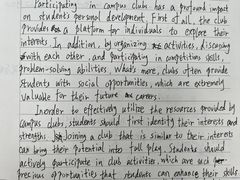 Participating in campus clubs has a profound impact
on students personal development. First of all, the club
provides a platform for individuals to explore their
interests. In addition, by organizing activities, discussing
with each other, and participating in competitions skills,
problem-solving abilities. What's more, clubs often provide
students with social opportunities, which are extremely
valuable for their future careers.
In order to effectively utilize the resources provided by
campus clubs, students should first identify their interests and
strengths. Joining a club that is similar to their interests
can bring their potential into full play. Students should
actively participate in club activities, which are such
precious opportunities that students can enhance their skills